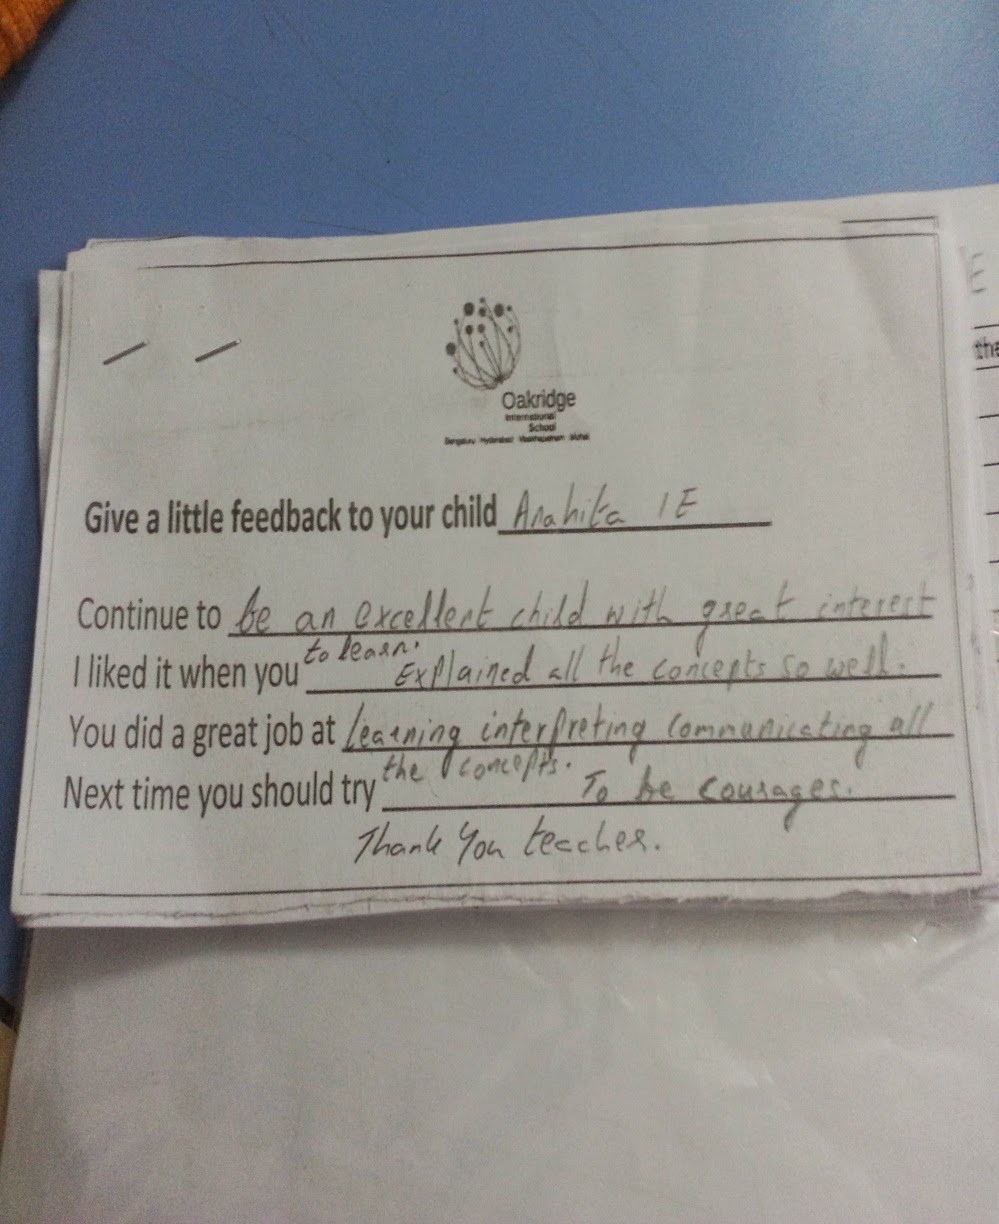 Oakridge
International
School
Bengaluru Hyderabad Visakhapatnam Mohali
Give a little feedback to your child Anahita 1E
Continue to be an excellent child with great interest
to learn.
I liked it when you Explained all the concepts so well.
You did a great job at learning interpreting communicating all
the concepts.
Next time you should try To be courages.
Thank You teacher.
E
the